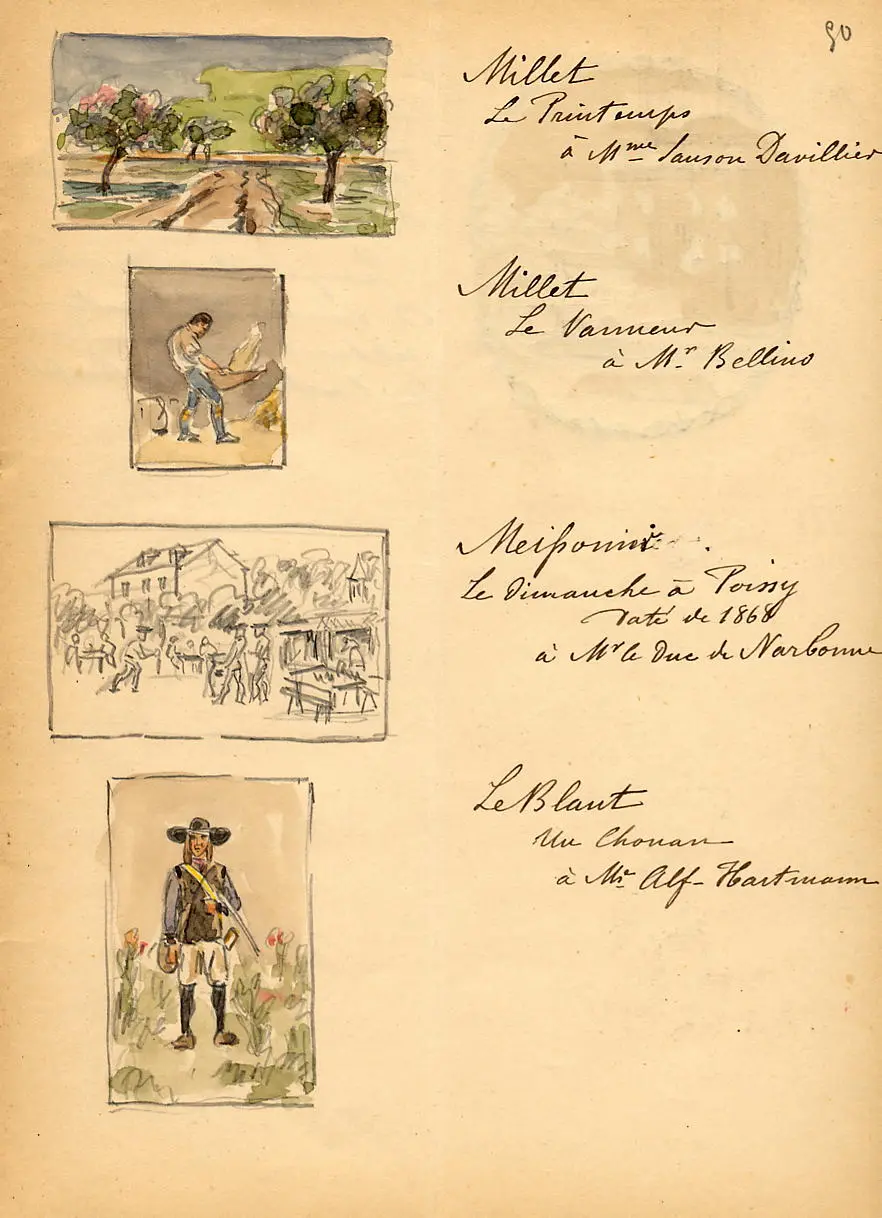 90
Millet
Le Printemps
à Mme Sanson Davillier
Millet
Le Vanneur
à Mr. Bellino
Meissonier
Le dimanche à Poissy
Daté de 1868
à Mr le Duc de Narbonne
Le Blant
Un Chouan
à Mr Alf- Hartmann